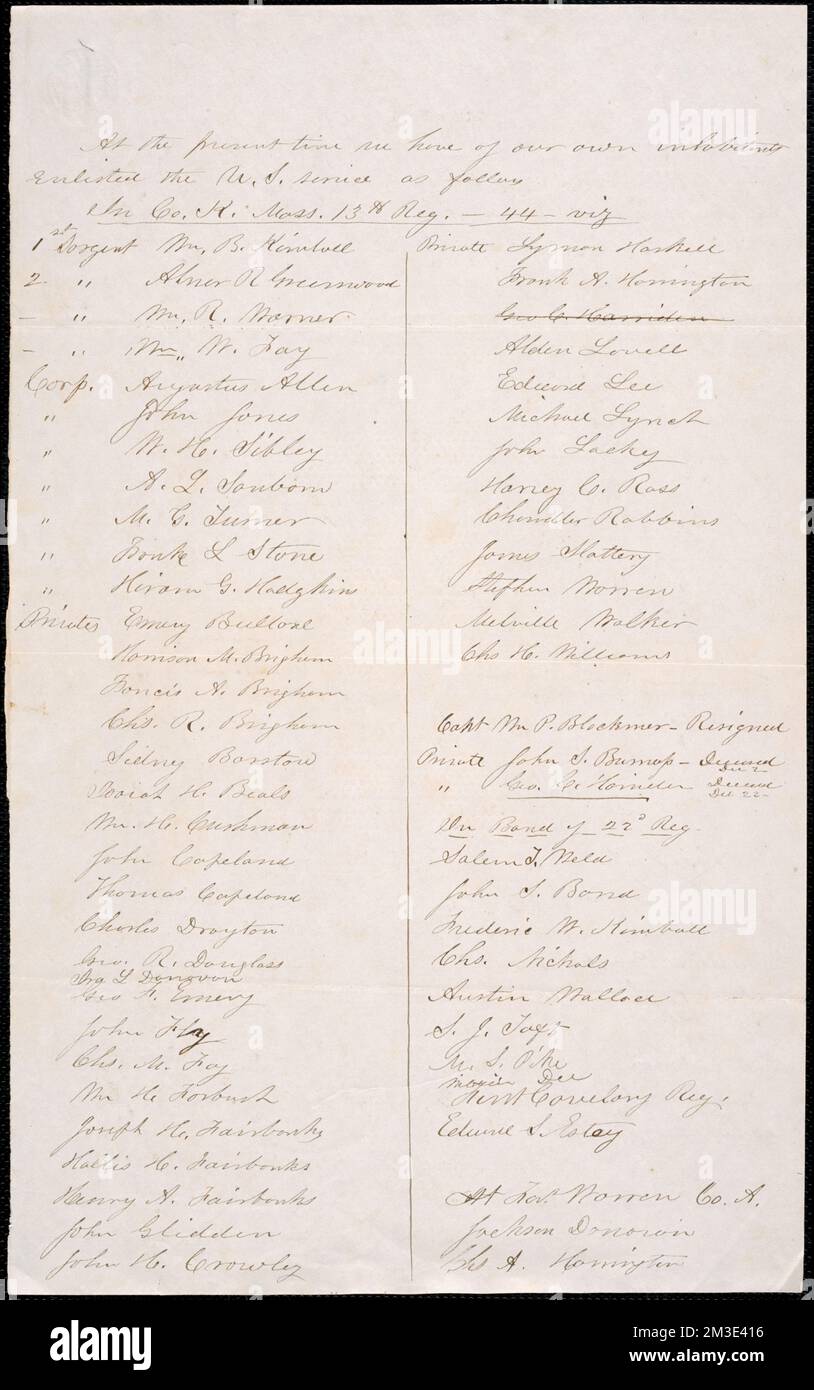 At the present time we have of our own inhabitants
Enlisted the U.S. service as follow
In Co. K. Mass. 13th Reg. — 44 — viz
1st Sargent Wm. B. Kimball
2 " Abner R Greenwood
— " Wm. R. Warner
— " Wm. W. Fay
Corp. Augustus Allen
" John Jones
" W. H. Sibley
" A. L. Sanborn
" M. G. Turner
" Frank L Stone
" Hiram G. Hodgkins
Privates Emery Bullard
Harrison M. Brigham
Francis A. Brigham
Chs. R. Brigham
Sidney Barstow
Josiah H. Beals
Wm. H. Cushman
John Copeland
Thomas Copeland
Charles Drayton
Geo. R. Douglass
Ira L Donovan
Geo F. Emery
John Fly
Chs. M. Fay
Wm H. Forbush
Joseph H. Fairbanks
Hollis H. Fairbanks
Henry A. Fairbanks
John Glidden
John H. Crowley
Private Lyman Haskell
Frank A. Harrington
Geo C. Harriden
Alden Lovell
Edward Lee
Michael Lynch
John Lackey
Harvey C. Ross
Chandler Robbins
James Slattery
Stephen Warren
Melville Walker
Chs H. Williams
Capt Wm P. Blackmer — Resigned
Private John S. Burnap — Deceased
Dec 2
" Geo. C. Deceased
Dec 22
In Band of 22d Reg.
Salem T. Weld
John S. Bond
Frederic W. Kimball
Chs. Nichols
Austin Wallace
S. J. Taft
M. S. Pike
First Cavelary Reg.
Edward S. Estey
At Fort Warren Co. A.
Jackson Donovan
Chs A. Harrington
alamy
alamy
alamy
Image ID: 2M3E416
www.alamy.com